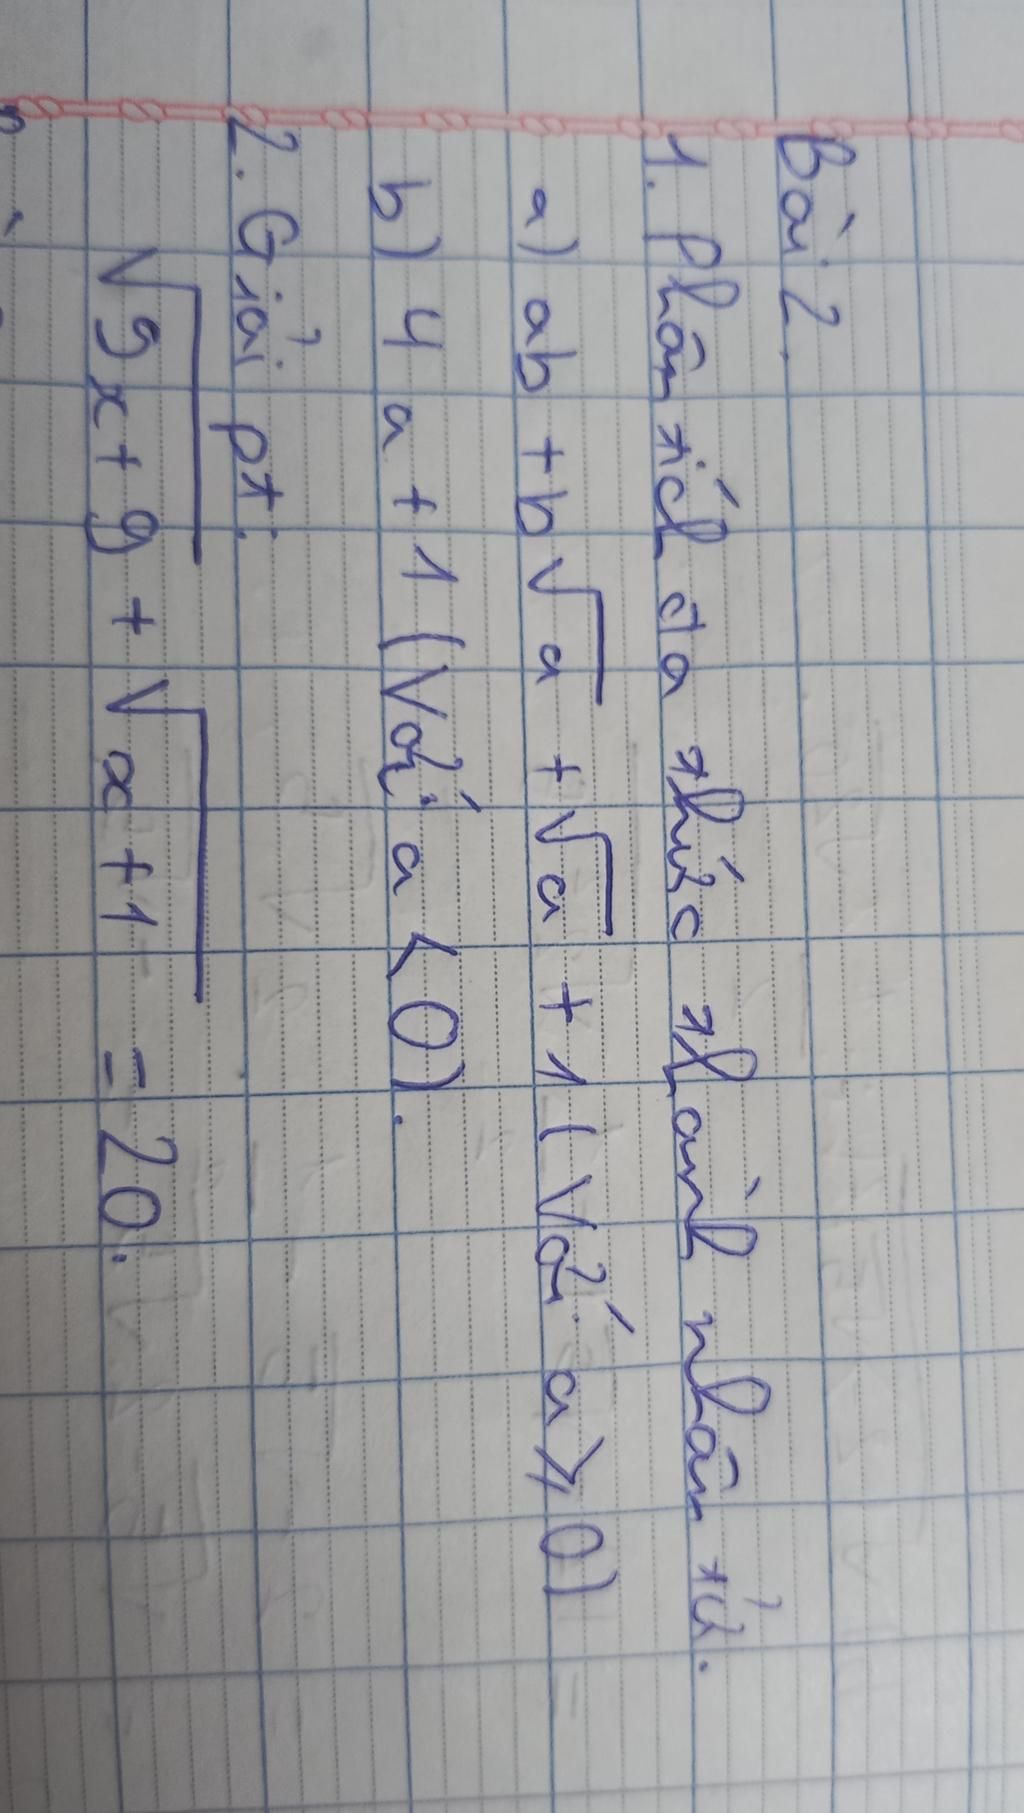 Bài 2.
1. Phân tích đa thức thành nhân tử.
a) ab + b√a + √a + 1 (Với a ≥ 0)
b) 4a + 1 (Với a < 0).
2. Giải pt.
√9x+9 + √x+1 = 20.